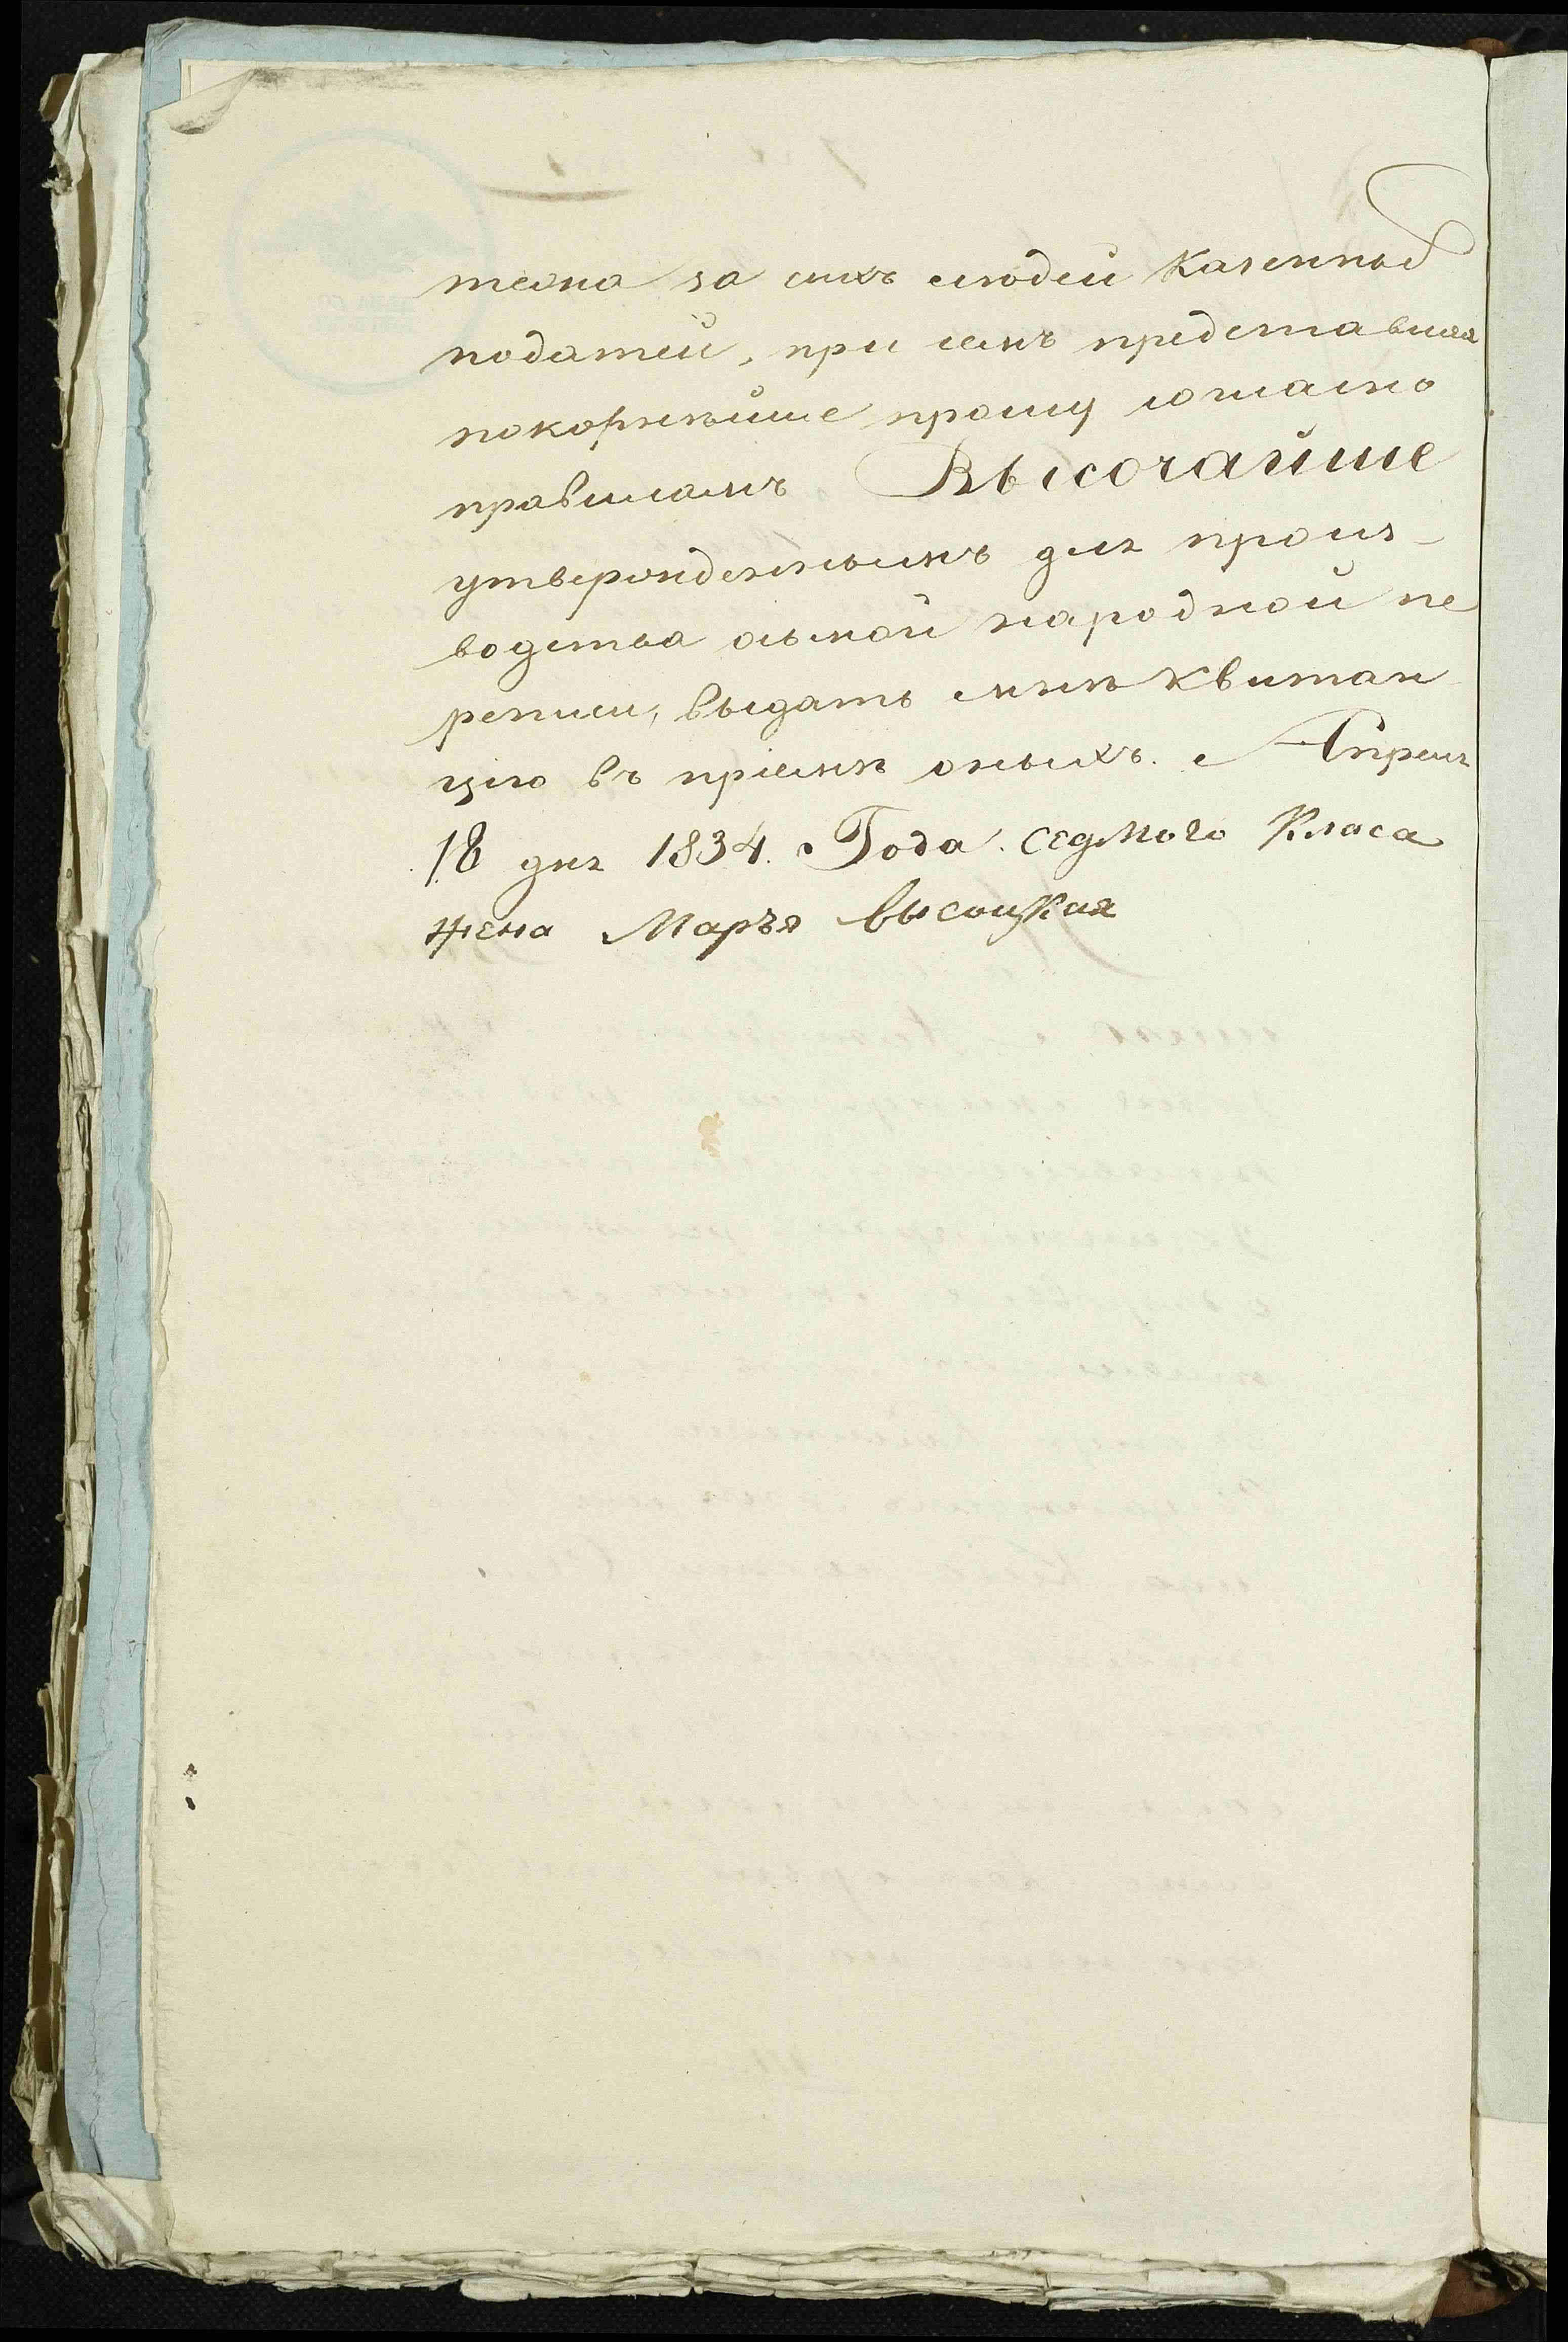 тежа за сихъ людей казенныхъ
податей, при семъ представляя
покорнѣйше прошу согласно
правиламъ Высочайше
утвержденнымъ для произ-
водства осьмой народной пе
реписи, выдать мнѣ квитан
цію въ пріемѣ оныхъ. Апреля
18 дня 1834. Года. седмого Класа
жена Маръя высоцкая